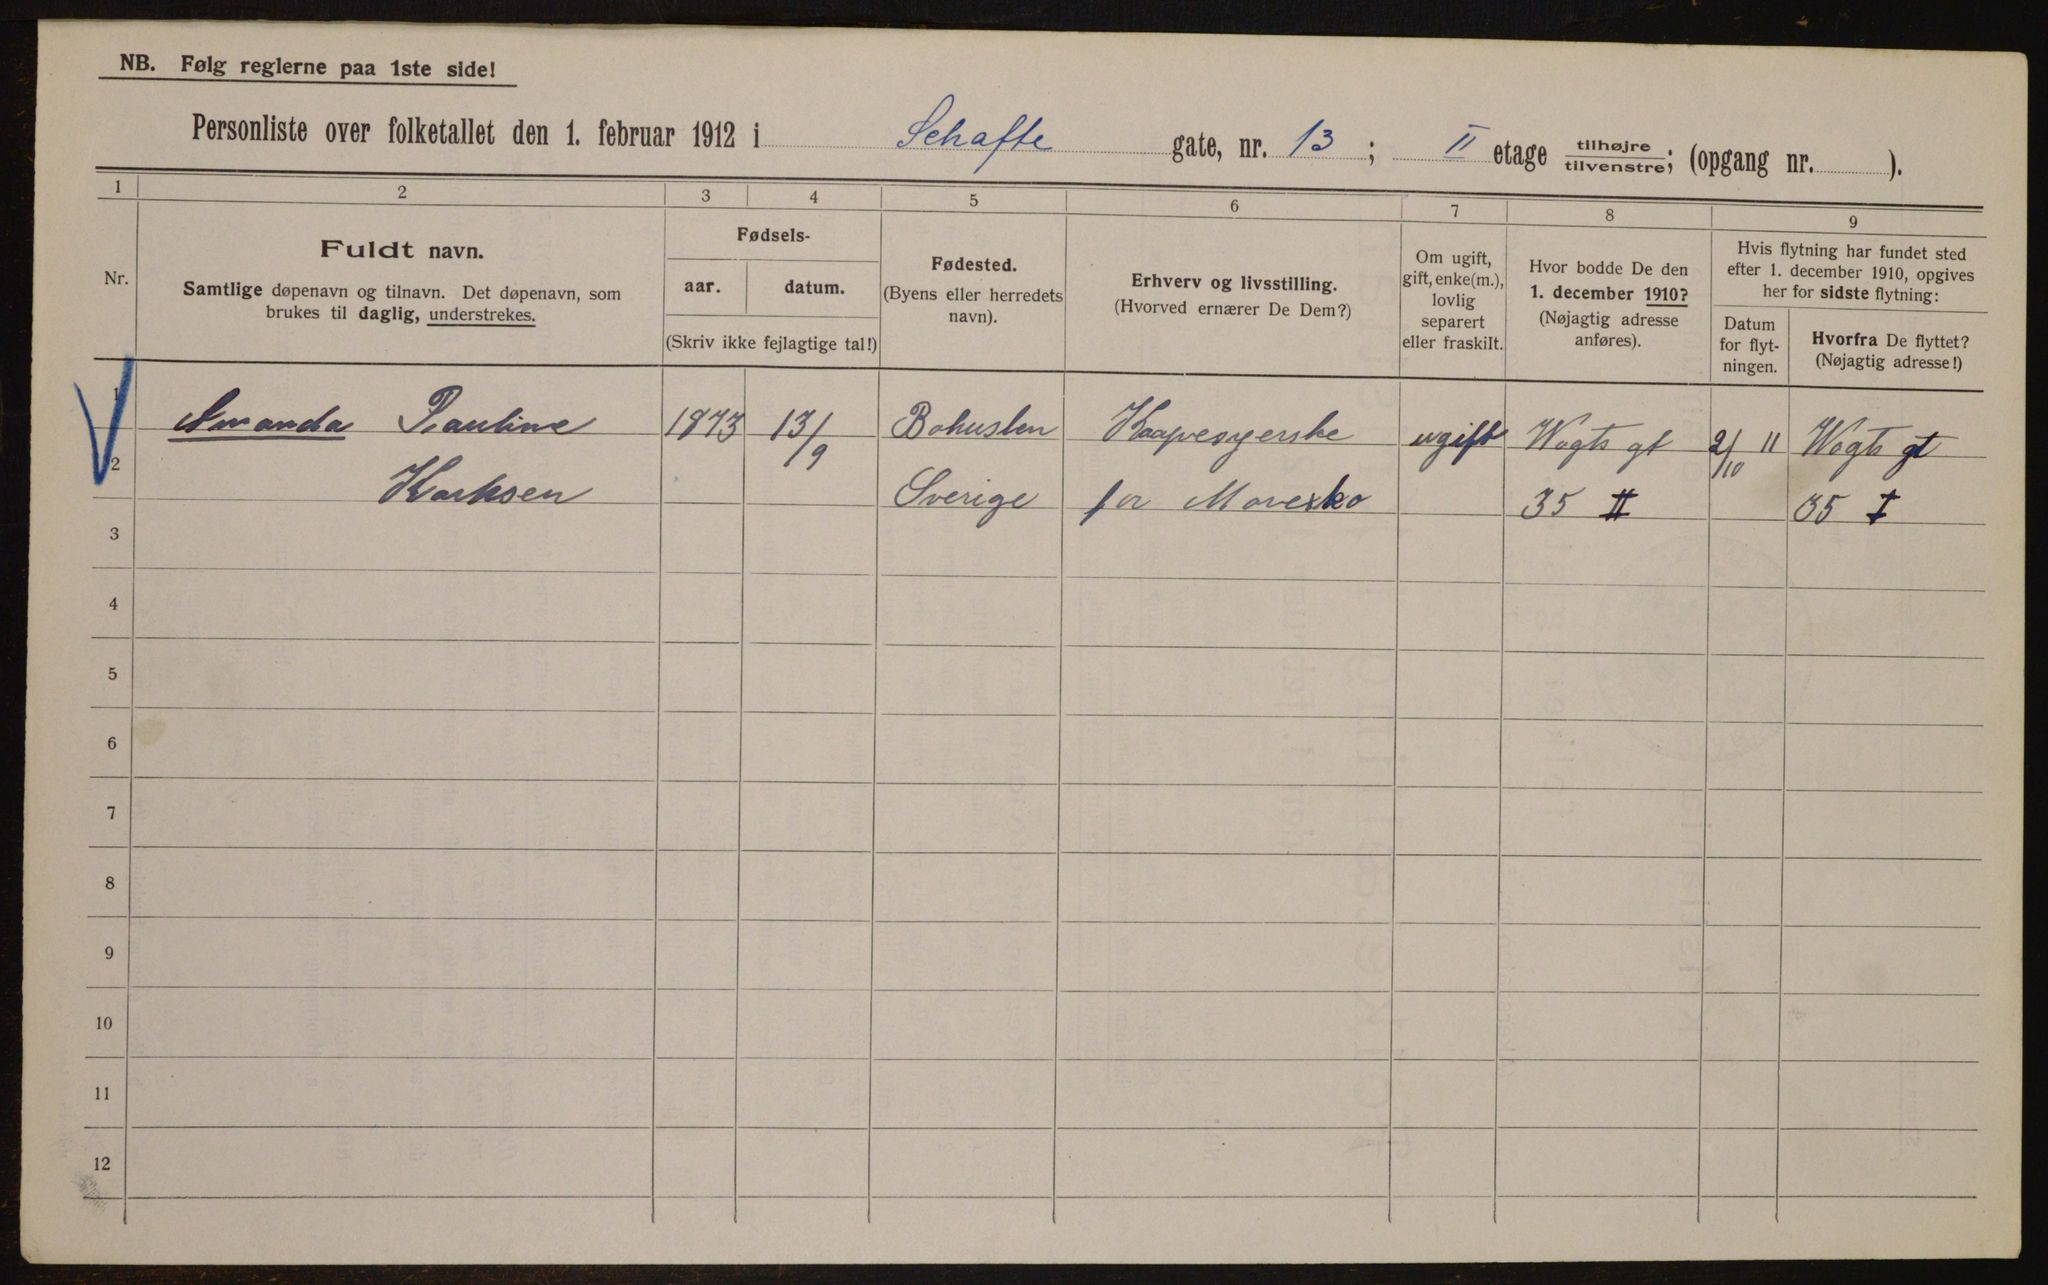 NB. Følg reglerne paa 1ste side!
Personliste over folketallet den 1. februar 1912 i Schafte gate, nr. 13; II etage tilhøjre/tilvenstre; (opgang nr. ).
1 2 3 4 5 6 7 8 9
Nr.
Fuldt navn.
Samtlige døpenavn og tilnavn. Det døpenavn, som
brukes til daglig, understrekes.
Fødsels-
aar. datum.
(Skriv ikke fejlagtige tal!)
Fødested.
(Byens eller herredets
navn).
Erhverv og livsstilling.
(Hvorved ernærer De Dem?)
Om ugift,
gift, enke(m.),
lovlig
separert
eller fraskilt.
Hvor bodde De den
1. december 1910?
(Nøjagtig adresse
anføres).
Hvis flytning har fundet sted
efter 1. december 1910, opgives
her for sidste flytning:
Datum
for flyt-
ningen.
Hvorfra De flyttet?
(Nøjagtig adresse!)
1 Amanda Pauline 1873 13/9 Bohuslen Kaapesyerske ugift Wogts gt 2/10 11 Wogts gt
2 Karlsen Sverige for 35 II 35 I
3
4
5
6
7
8
9
10
11
12